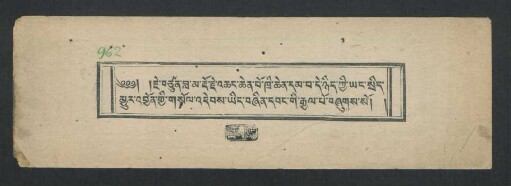 962
༄༅༅། །རྗེ་བཙུན་བླ་མ་རྡོ་རྗེ་འཆང་ཆེན་པོ་ཁྲི་ཆེན་རམ་པ་དེ་ཉིད་ཀྱི་ཡང་སྲིད་
མྱུར་འབྱོན་གྱི་གསོལ་འདེབས་ཡིད་བཞིན་དབང་གི་རྒྱལ་པོ་བཞུགས་སོ། །